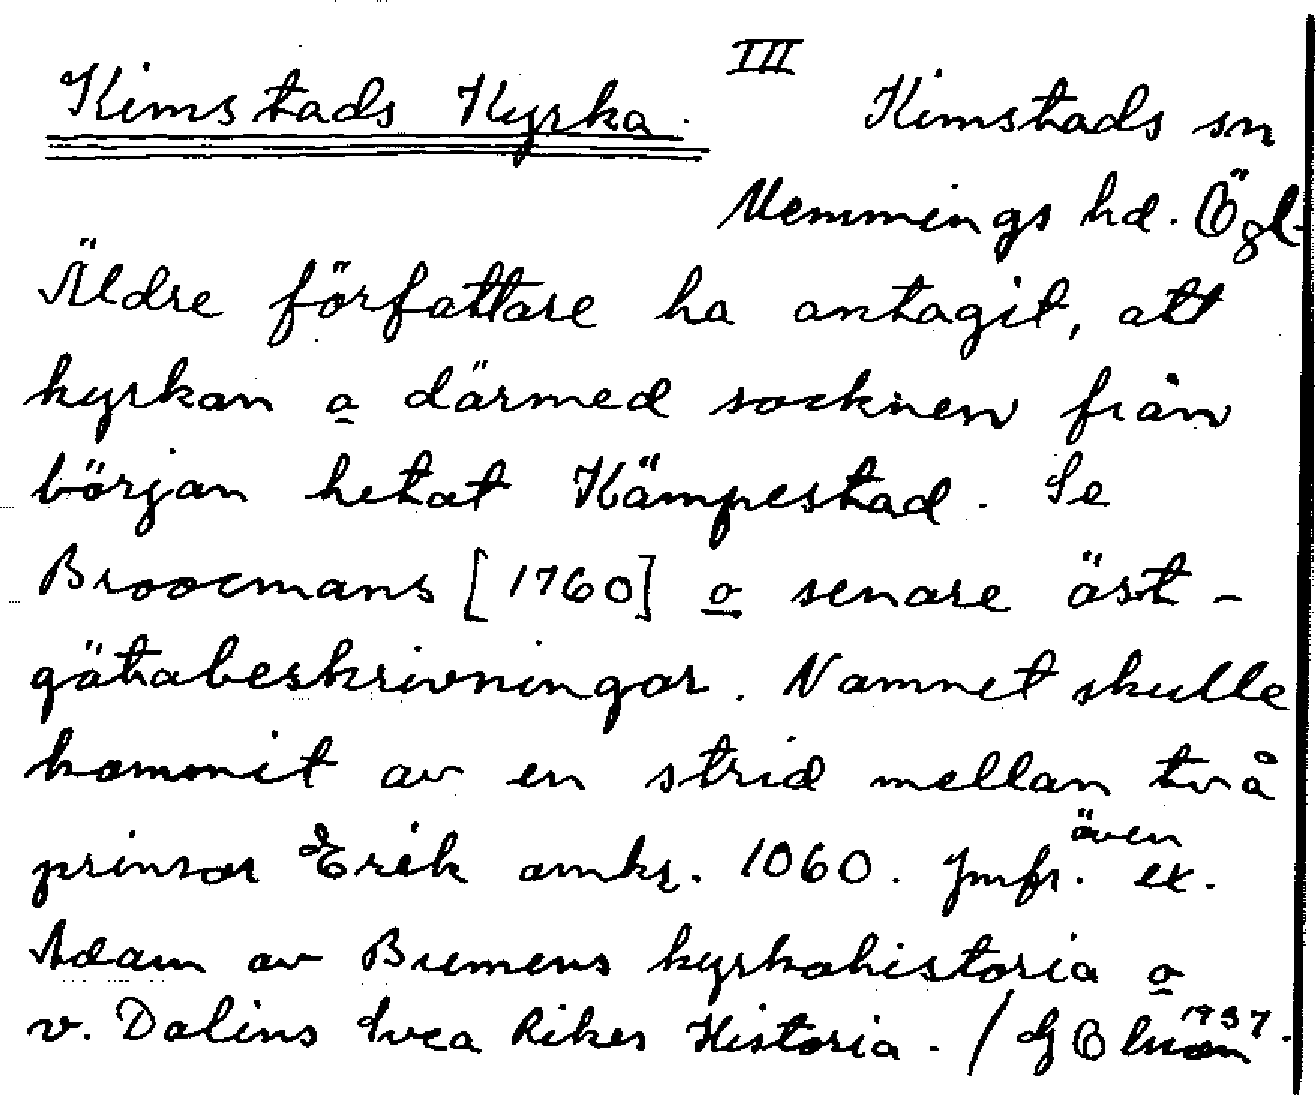 III
Kimstads Kyrka. Kimstads sn
Memmings hd. Ögl.
Äldre författare ha antagit, att
kyrkan o därmed socknen från
början hetat Kämpestad. Se
Broocmans [1760] o senare öst-
götabeskrivningar. Namnet skulle
kommit av en strid mellan två
prinsar Erik omkr. 1060. Jmfr. även ex.
Adam av Bremens kyrkohistoria o
v. Dalins Svea Rikes Historia. / 1937.